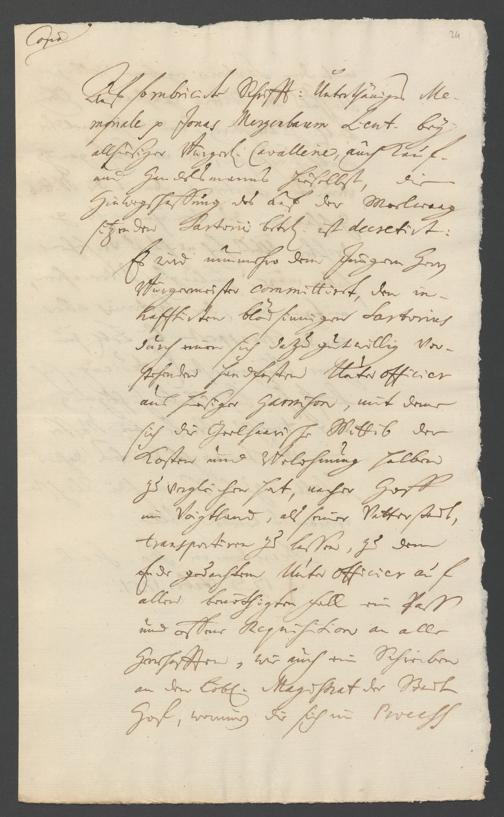 Copia
24
Auf sombricirte Schrifft: Unterthäniges Me-
moriale p Jonas Morgenbaum Lieut. bey
allhiesiger Bürgerl. Cavallerie, auch Kauf-
und Handelsmanns hieselbst, die
Hinwegschaffung des auf der Mochwaag
sitzenden Sartorii betrf. ist decretirt:
Es wird nunmehro dem Jüngern Herrn
Bürgermeister committirt, den in-
hafftirten blödsinnigen Sartorius
durch einen sich dazu gutwillig ver-
stehenden handfesten Unter officier
aus hiesiger Garnison, mit deme
sich die Wittib der
Kosten und Belohnung halben
zu vergleichen hat, nacher Hoff
im Voigtland, als seiner Vatterstadt,
transportiren zu lassen, zu dem
Ende gedachtem Unter officier auf
allen benöthigten Fall ein Pass
und offene Requisition an alle
Herrschafften, wie auch ein Schreiben
an den Löbl. Magistrat der Stadt
Hof, worinn die sich im Process